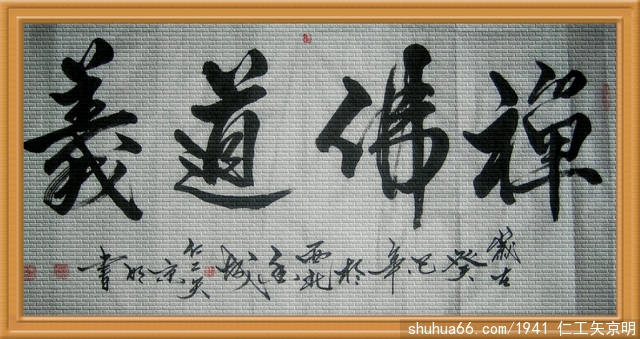 禪佛道義
歲在癸巳年於西北金城仁工矢京明書
shuhua66.com/1941 仁工矢京明